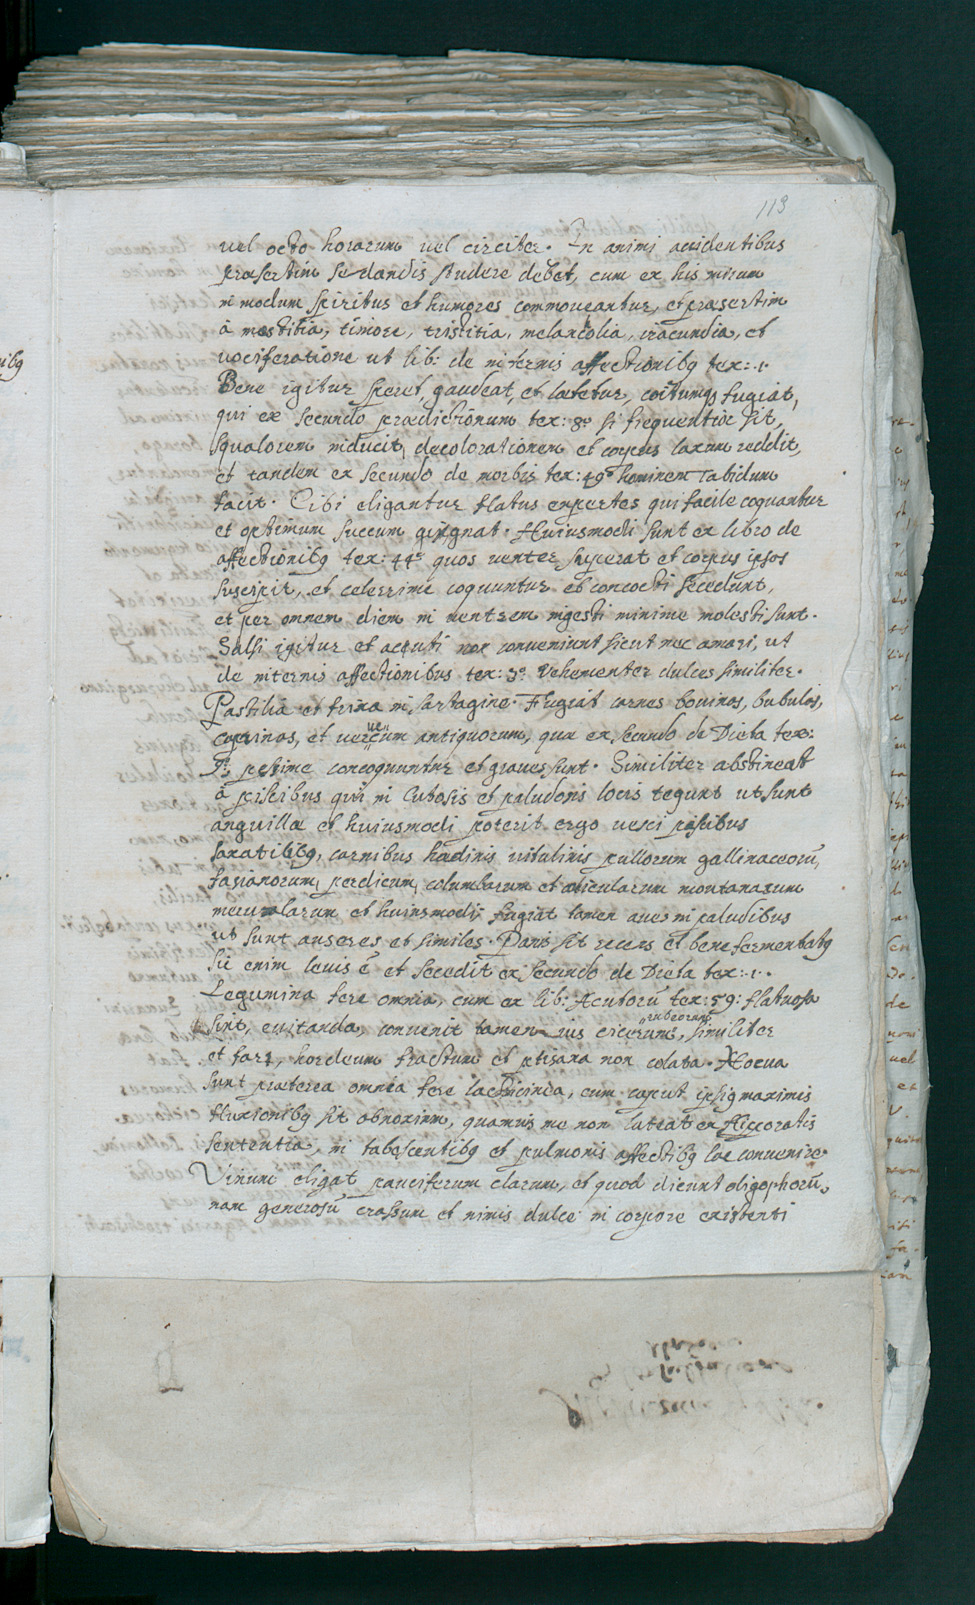 113
uel octo horarum uel circiter. In animi accidentibus
præsertim sedandis studere debet, cum ex his mirum
in modum spiritus et humores commoueantur, et præsertim
à mæstitia, timore, tristitia, melancolia, iracundia, et
uociferatione ut lib: de internis affectionibq tex: 1.
Bene igitur speret, gaudeat, et lætetur, coitumq fugiat,
qui ex secundo prædictionum tex: 8º si frequentior sit,
squalorem inducit, decolorationem et corpus laxum reddit,
et tandem ex secundo de morbis tex: 49º hominem Tabidum
facit. Cibi eligantur flatus expertes qui facile coquantur
et optimum succum gignat. Huiusmodi sunt ex libro de
affectionibq tex: 44º quos uenter superat et corpus ipsos
suscipit, et celerrime coquuntur et concocti secedunt,
et per omnem diem in uentrem ingesti minime molesti sunt.
Salsi igitur et accuti non conueniunt sicut nec amari, ut
de internis affectionibus tex: 3º Vehementer dulces similiter.
Pastilia et frixa in sartagine. Fugiat carnes bouinas, bubulas,
caprinas, et ueruecum antiquorum, quæ ex secundo de Dieta tex:
pessime concoquuntur et graues sunt. Similiter abstineat
à piscibus qui in lutosis et paludonis locis tegunt ut sunt
anguilla et huiusmodi poterit ergo uesci piscibus
saxatilibq, carnibus hædinis uitulinis pullorum gallinaceorũ,
fasianorum, perdicum, columbarum et auicularum montanarum
merularum et huiusmodi fugiat tamen aues in paludibus
ut sunt anseres et similes. Panis sit recens et bene fermentatq
sic enim leuis ẽ et secedit ex secundo de Dieta tex: 1.
Legumina fere omnia, cum ex lib: Acutorũ tex: 59: flatuosa
sint, euitanda, conuenit tamen ius cicerum rubeorum, similiter
et fari, hordeum fractum et ptisana non colata. Noxua
sunt præterea omnia fere lacticinia, cum caput ipsiq maximis
fluxionibq sit obnoxium, quamuis me non lateat ex Hippocratis
sententia, in tabescentibq et pulmonis affectibq lac conuenire.
Vinum eligat pauciferum clarum, et quod dicunt oligophorũ.
nam generosũ crassum et nimis dulce in corpore existenti